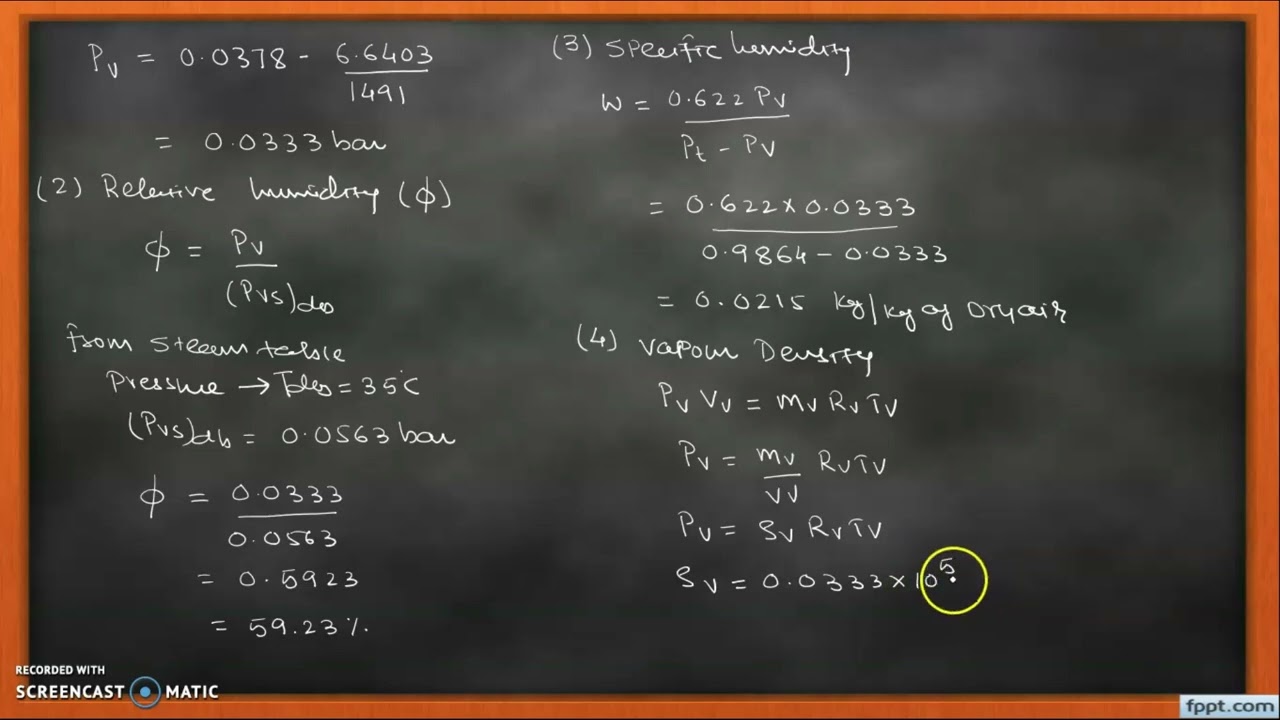 Pv = 0.0378 - 6.6403
1491
= 0.0333 bar
(2) Relative humidity (ϕ)
ϕ = Pv
(Pvs)db
from steam table
Pressure → Tdb = 35°C
(Pvs)db = 0.0563 bar
ϕ = 0.0333
0.0563
= 0.5923
= 59.23 %.
(3) Specific humidity
W = 0.622 Pv
Pt - Pv
= 0.622 × 0.0333
0.9864 - 0.0333
= 0.0215 kg/kg of Dry air
(4) Vapour Density
Pv Vv = mv Rv Tv
Pv = mv Rv Tv
Vv
Pv = ρv Rv Tv
ρv = 0.0333 × 10^5
RECORDED WITH
SCREENCAST MATIC
fppt.com